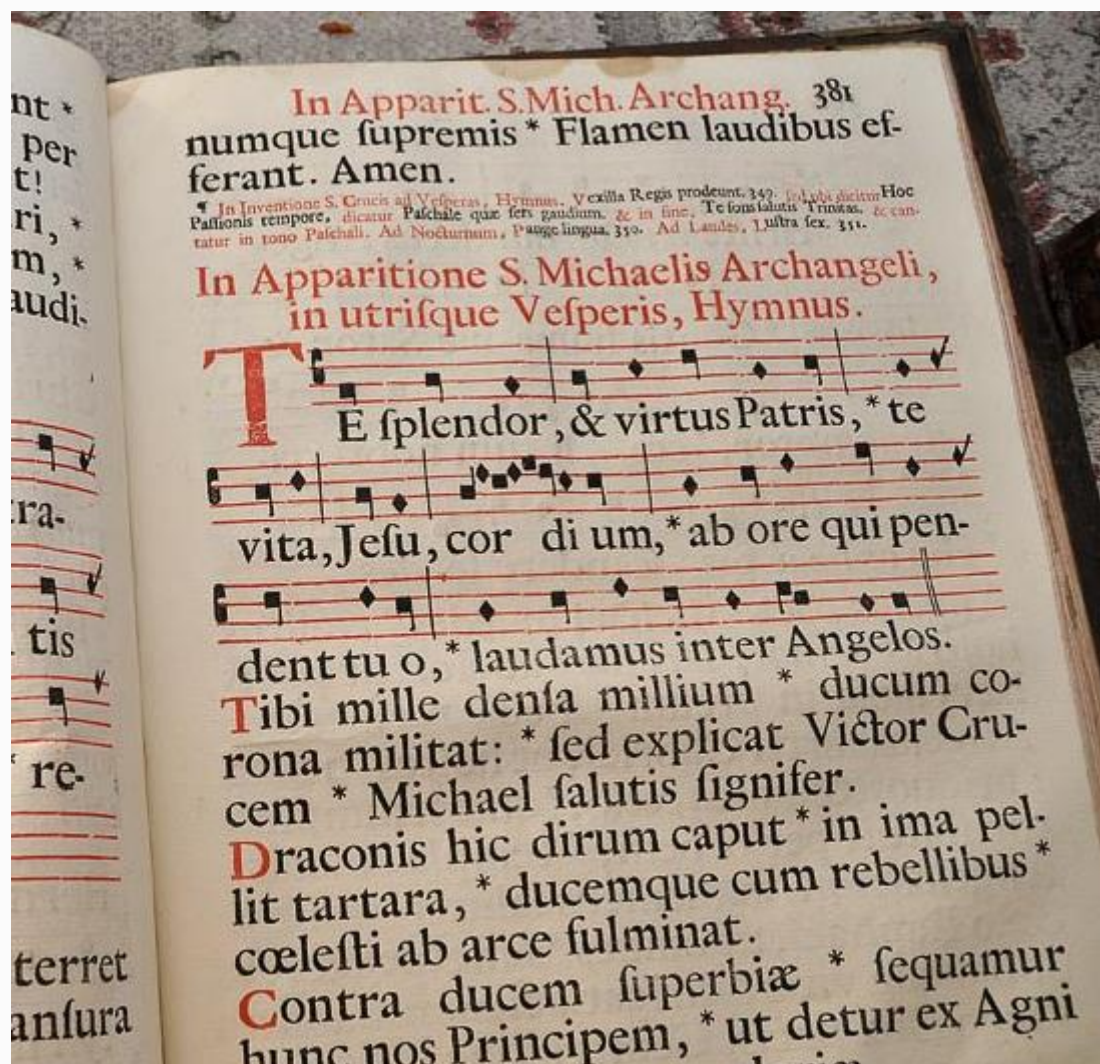 nt *
per
t!
ri, *
m, *
audi-
ra-
tis
re-
terret
anſura
In Apparit. S. Mich. Archang. 381
numque ſupremis * Flamen laudibus ef-
ferant. Amen.
¶ In Inventione S. Crucis ad Veſperas, Hymnus, Vexilla Regis prodeunt. 349. ſed ubi dicitur Hoc
Paſſionis tempore, dicatur Paſchale quæ fers gaudium, & in fine, Te fons ſalutis Trinitas, & can-
tatur in tono Paſchali. Ad Nocturnum, Pange lingua. 350. Ad Laudes, Luſtra ſex. 351.
In Apparitione S. Michaelis Archangeli,
in utriſque Veſperis, Hymnus.
TE ſplendor, & virtus Patris, * te
vita, Jeſu, cor di um, * ab ore qui pen-
dent tu o, * laudamus inter Angelos.
Tibi mille denſa millium * ducum co-
rona militat: * ſed explicat Victor Cru-
cem * Michael ſalutis ſignifer.
Draconis hic dirum caput * in ima pel-
lit tartara, * ducemque cum rebellibus *
cœleſti ab arce fulminat.
Contra ducem ſuperbiæ * ſequamur
hunc nos Principem, * ut detur ex Agni